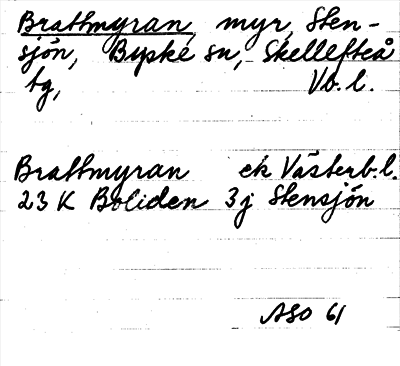 Brattmyran, myr, Sten-
sjön, Byske sn, Skellefteå
tg, Vb. l.
Brattmyran ek Västerb. l.
23 K Boliden 3 j Stensjön
ASO 61